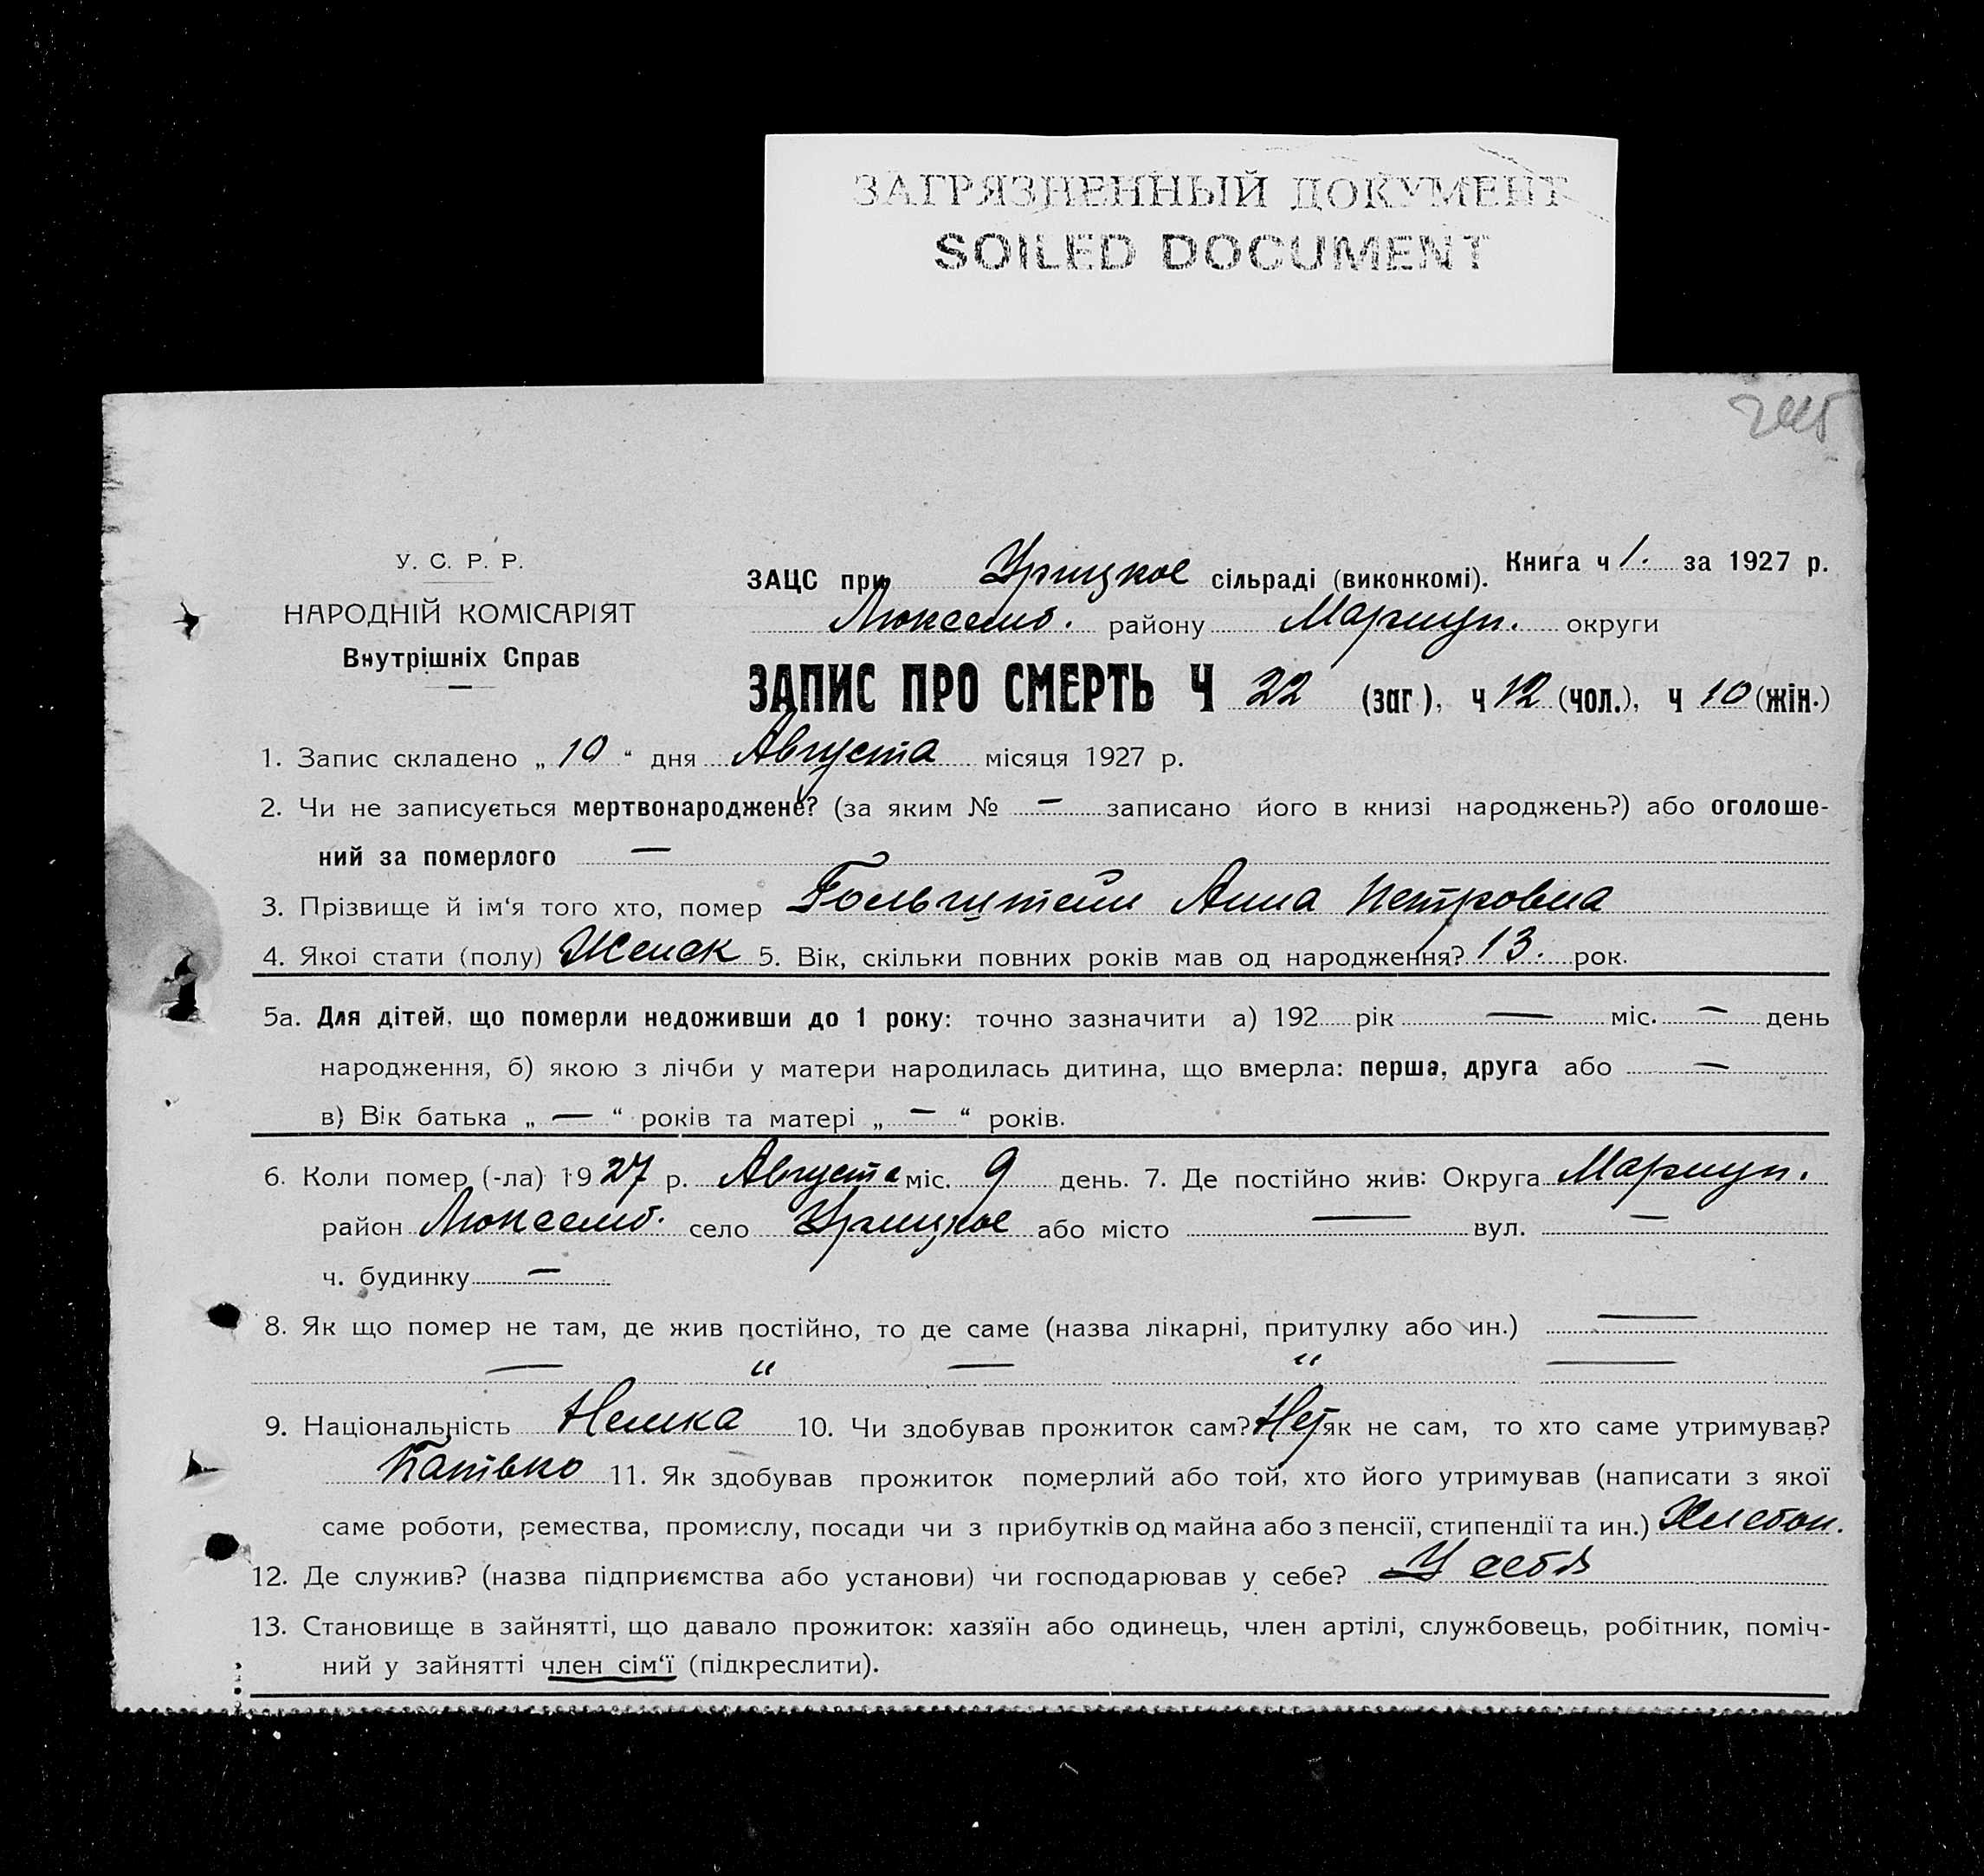 ЗАГРЯЗНЕННЫЙ ДОКУМЕНТ
SOILED DOCUMENT
У. С. Р. Р.
НАРОДНІЙ КОМІСАРІЯТ
Внутрішніх Справ
ЗАЦС при Урицкое сільраді (виконкомі). Книга ч 1. за 1927 р.
Люксемб. району Мариуп. округи
ЗАПИС ПРО СМЕРТЬ Ч 22 (заг.), ч 12 (чол.), ч 10 (жін.)
1. Запис складено „ 10 “ дня Августа місяця 1927 р.
2. Чи не записується мертвонароджене? (за яким № — записано його в книзі народжень?) або оголоше-
ний за померлого —
3. Прізвище й ім‘я того хто, помер Гольцштейн Анна Петровна
4. Якої стати (полу) Женск 5. Вік, скільки повних років мав од народження? 13. рок.
5а. Для дітей, що померли недоживши до 1 року: точно зазначити а) 192 рік — міс. — день
народження, б) якою з лічби у матери народилась дитина, що вмерла: перша, друга або —
в) Вік батька „ — “ років та матері „ — “ років.
6. Коли помер (-ла) 1927 р. Августа міс. 9 день. 7. Де постійно жив: Округа Мариуп.
район Люксемб. село Урицкое або місто — вул. —
ч. будинку —
8. Як що помер не там, де жив постійно, то де саме (назва лікарні, притулку або ин.) —
— “ — “ —
9. Національність Немка 10. Чи здобував прожиток сам? Нет як не сам, то хто саме утримував?
Батько 11. Як здобував прожиток померлий або той, хто його утримував (написати з якої
саме роботи, ремества, промислу, посади чи з прибутків од майна або з пенсії, стипендії та ин.) Хлебоп.
12. Де служив? (назва підприємства або установи) чи господарював у себе? У себя
13. Становище в зайнятті, що давало прожиток: хазяїн або одинець, член артілі, службовець, робітник, поміч-
ний у зайнятті член сім‘ї (підкреслити).